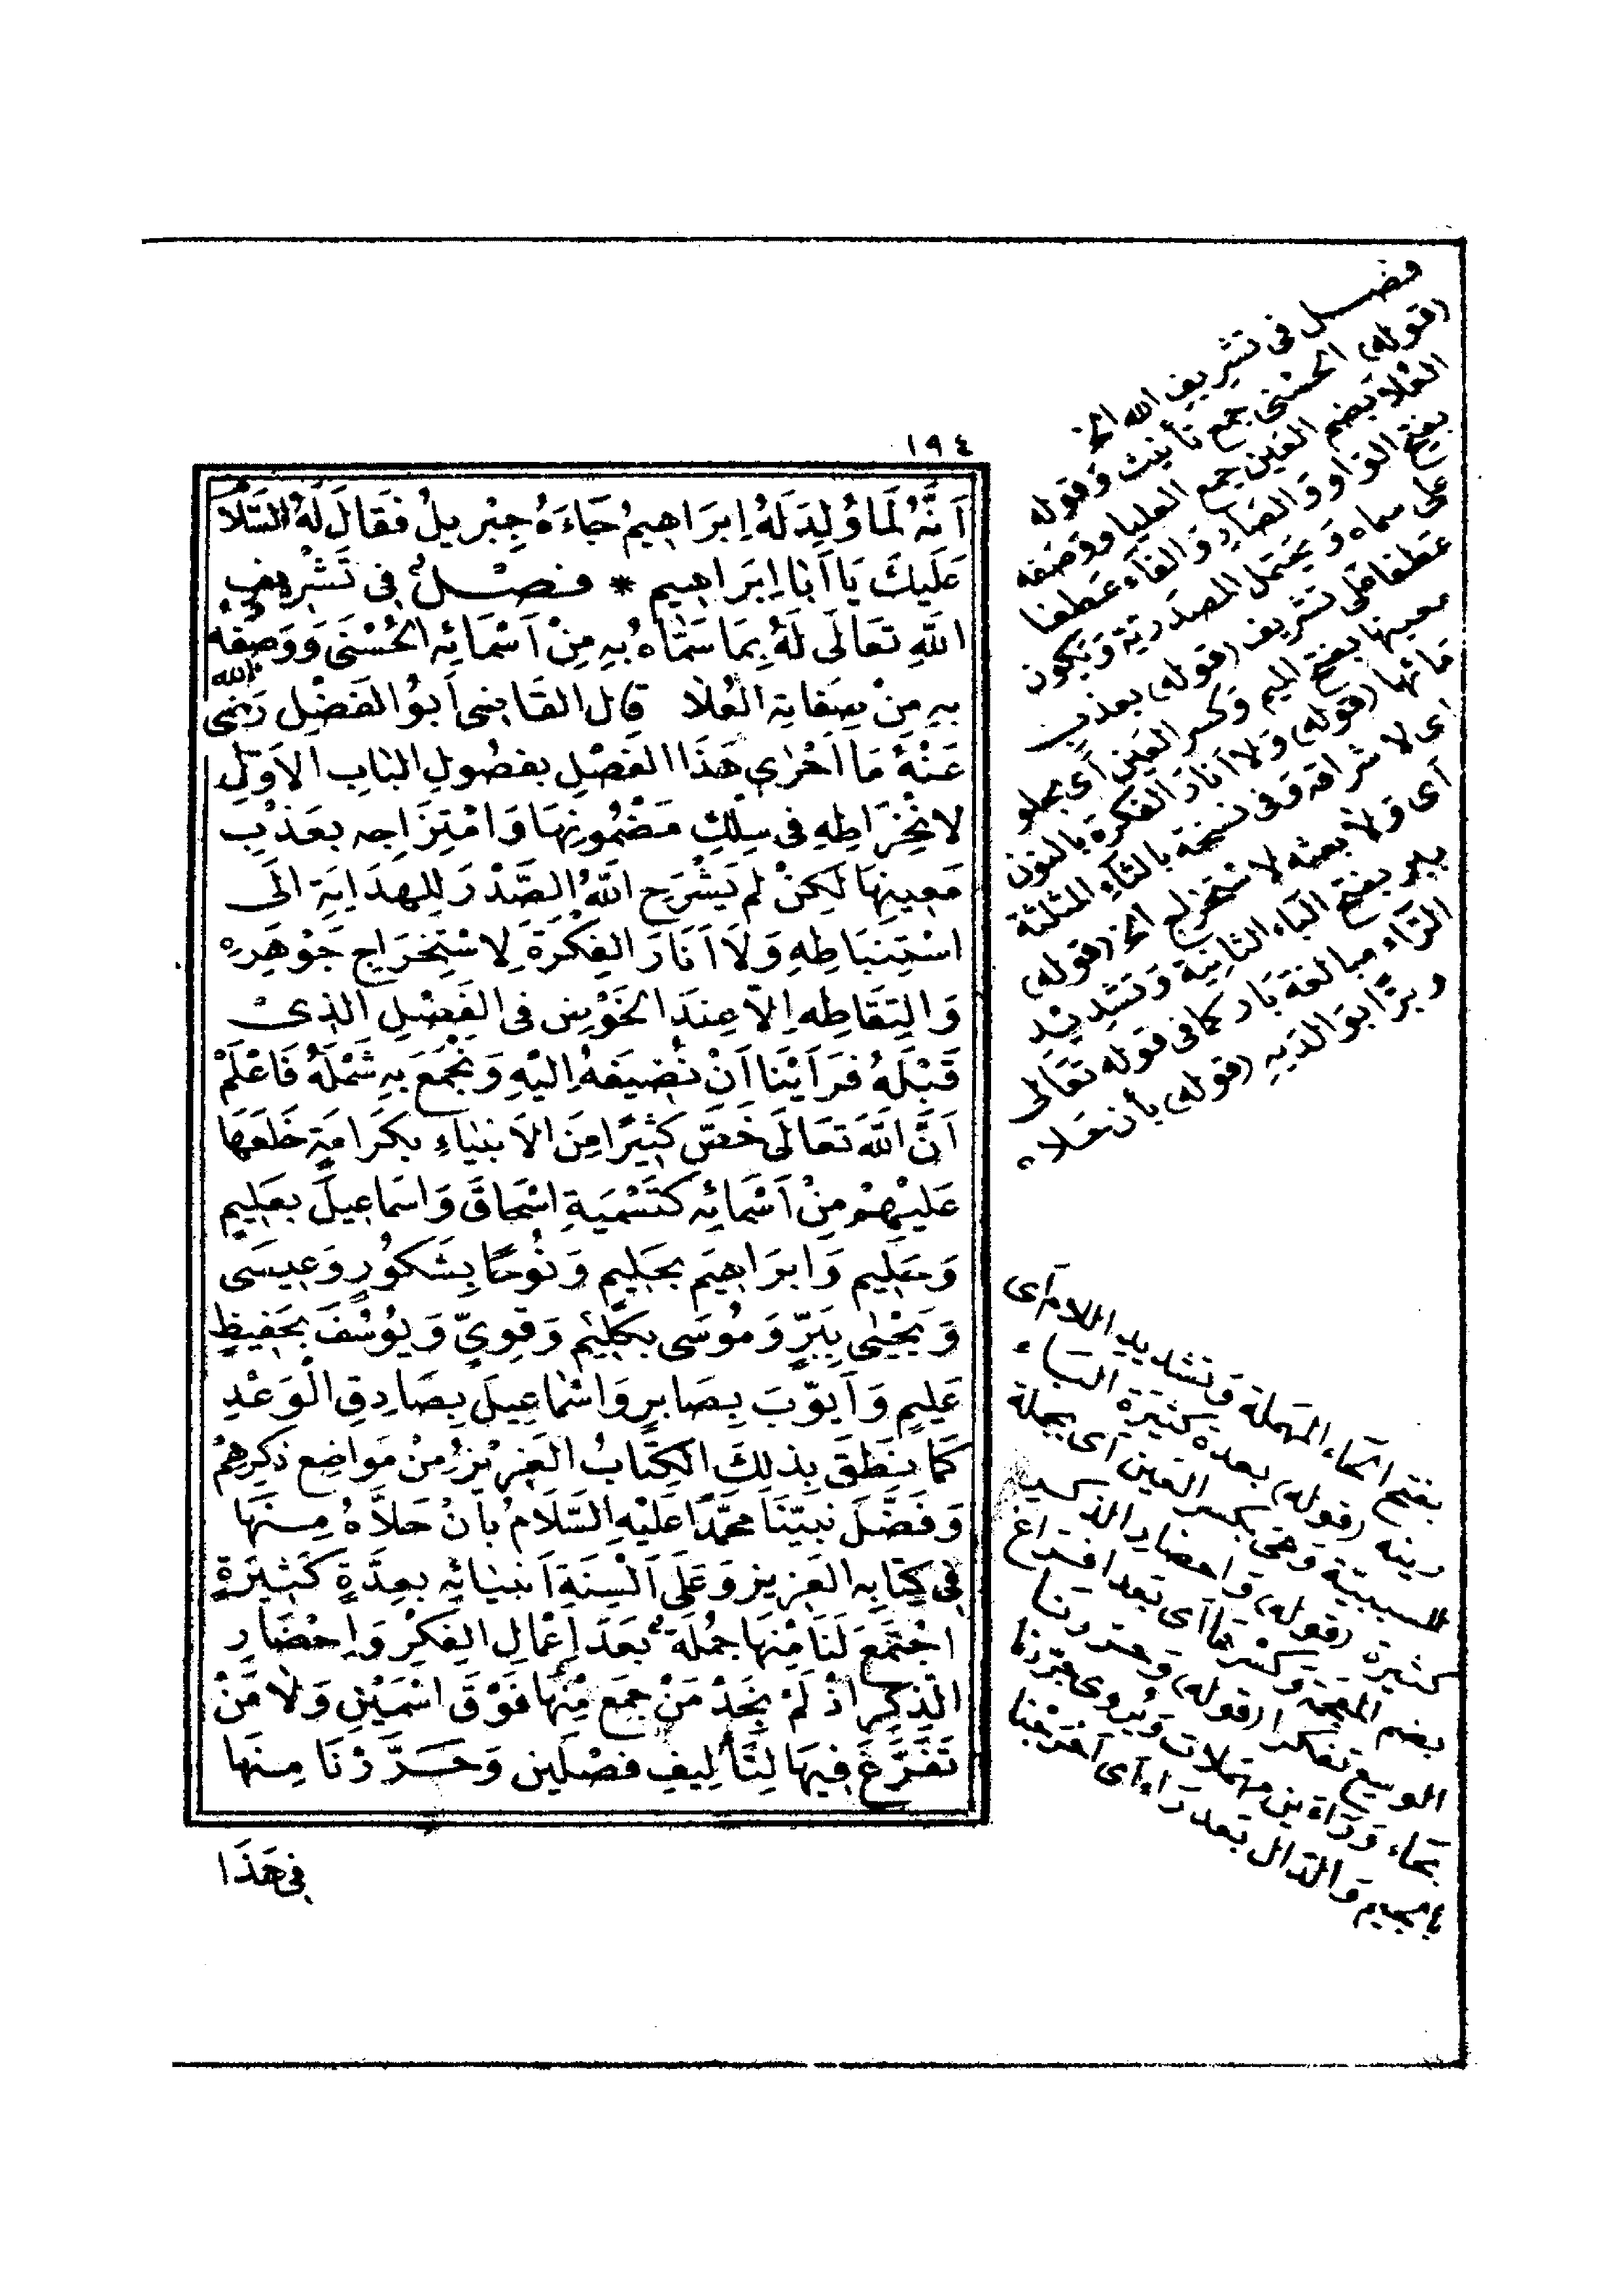 ١٩٤
اَنَّهُ لَمَّا وُلِدَ لَهُ اِبرَاهِيمُ جَاءَهُ جِبْرِيلُ فَقَالَ لَهُ السَّلَامُ
عَلَيكَ يَا اَبَا اِبرَاهِيمِ * فصْلٌ فى تَشْرِيفِ
اللهِ تعَالَى لَهُ بِمَا سَمَّاهُ بِهِ مِنْ اَسْمَائِهِ الحُسْنَى وَوَصَفَهُ
بِهِ مِنْ صِفَاتِهِ العُلَا قال القَاضِى اَبوُ الفَضْلِ رَضِىَ اللهُ
عَنْهُ مَا اَحْرَى هَذَا الفَصْلِ بفصُولِ البَابِ الاَوَّلِ
لانْخِرَاطِهِ فى سِلْكِ مَضْمُونِهَا وَامْتِزَاجِهِ بعَذْبِ
مَعِينِهَا لَكِنْ لم يَشْرَحِ اللهُ الصَّدْرَ لِلهدَايَةِ اِلَى
اسْتِنبَاطِهِ وَلَا اَنَارَ الفِكْرَةَ لِاسْتِخرَاجِ جَوْهَرِهِ
وَالتِقَاطِهِ اِلَّا عِندَ الخَوْضِ فى الفَصْلِ الذِىْ
قَبْلَهُ فرَاَيْنَا اَنْ نُضِيفَهُ اِليْهِ وَنَجْمَعَ بِهِ شَمْلَهُ فَاعْلَمْ
اَنَّ اللهَ تعَالَى خَصَّ كثِيرًا مِنَ الاَنبِيَاءِ بكَرَامَةٍ خَلَعَهَا
عَليْهِمْ مِنْ اَسْمَائِهِ كتَسْمِيَةِ اِسْحَاقَ وَاسمَاعِيلَ بعَلِيمٍ
وَحَلِيمٍ وَابرَاهِيمَ بحَلِيمٍ وَنُوحًا بِشَكُورٍ وَعِيسَى
وَيَحْيَى بِبَرٍّ وَمُوسَى بكَلِيمٍ وَقوِىٍّ وَيوُسُفَ بحَفِيظٍ
عَلِيمٍ وَاَيوّبَ بِصَابرٍ وَاسْمَاعِيلَ بِصَادِقِ الْوَعْدِ
كَمَا نطَقَ بِذلِكَ الكِتَابُ العَزِيْزُ مِنْ مَوَاضِعِ ذِكرِهِمْ
وَفَضَّلَ نبِيّنَا مُحَمَّدًا عَليْهِ السَّلَامُ بأَنْ حَلَّاهُ مِنْهَا
فِى كِتَابِهِ العَزِيزِ وَعَلَى اَلْسِنَةِ اَنبِيَائِهِ بعِدَّةٍ كَثِيْرَةٍ
اجْتَمَعَ لَنَا مِنْهَا جُمْلَةٌ بعَدَ اِعْمَالِ الفِكْرِ وَاِحْضَارِ
الذِكْرِ اذْ لَمْ نَجِدْ مَنْ جمَعَ مِنْهَا فَوْقَ اسْمَيْنِ وَلَا مَنْ
تَفَرَّغَ فِيهَا لِتَأْلِيفِ فصْلَينِ وَحَرَّرْنَا مِنْهَا
فِى هَذَا
فصل فى تشريف الله الخ
(قوله) الحسْنى جمع تأنيث وقوله
العُلا بضم العَين جمع العليا ووصفه
بفتح الوَاو وَالصَاد وَالفَاء عَطفا
على سماه وَيحتمل المصدَرية وَيكون
عَطفا على تشريف (قوله) بعذب
معينها بفتح الميم وَكسر العَين أى بحلو
مائها (قوله) وَلا أنارَ الفكرة بالنون
أى لا شراقه وَفى نسخة بالثاء المثلثة
أى وَلا بعثه لاستخراج الخ (قوله)
ببر بفتح البَاء الثانية وَتشديد
الرَّاء مبالغة بَار كما فى قوله تعَالى
وبرًّا بوَالدَيهِ (قوله) بأن حَلاه
بفتح الحَاء المهملة وَتشديد اللام أى
زينه (قوله) بعدة كثيرة البَاء
للسببية وَهى بكسر العَين أى بجملة
كثيرة (قوله) وَاحضار الذكر
بضم المعجمة وَكسْرهَا أى بعد افراغ
الوسع تفكرا (قوله) وَحررنا
بحاء وَرَاءين مهملات وَيُروى
وَالدَال بعد رَاء أى أفرَدنا